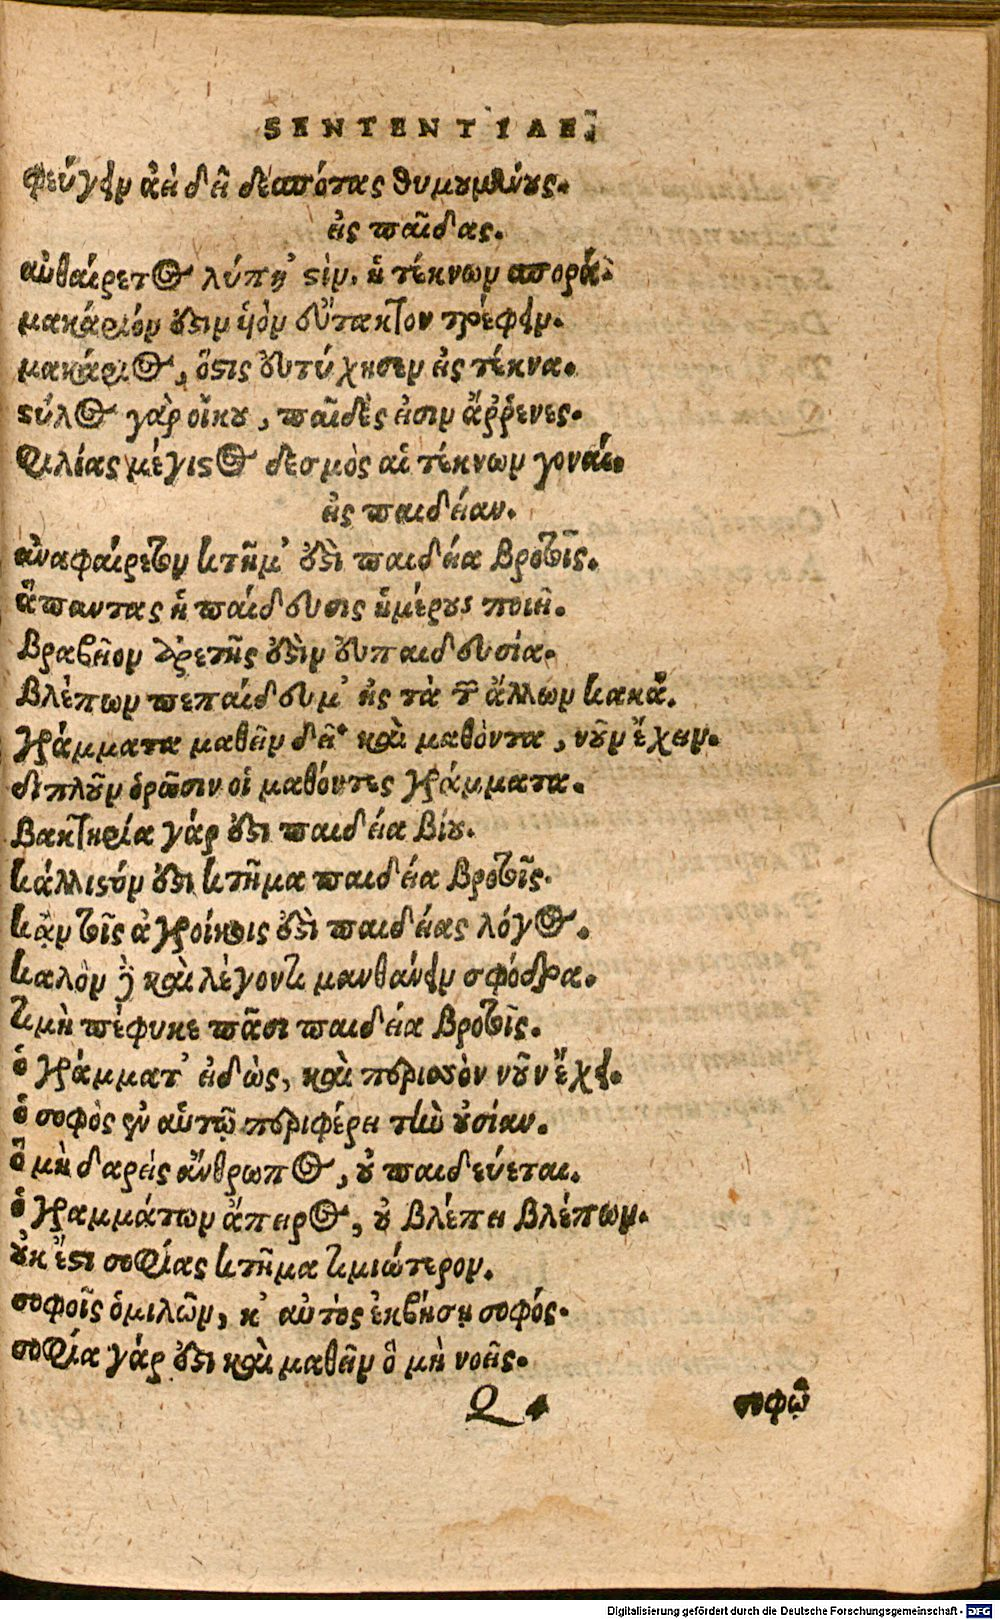 SENTENTIAE.
φεύγειν ἀεὶ δεῖ δεσπότας θυμουμένους.
εἰς παῖδας.
αὐθαίρετος λύπη 'στὶν ἡ τέκνων σπορά.
μακάριόν ἐστιν υἱὸν εὔτακτον τρέφειν.
μακάριος, ὅστις εὐτύχησεν εἰς τέκνα.
στύλος γὰρ οἴκου, παῖδές εἰσιν ἄῤῥενες.
φιλίας μέγιστος δεσμὸς αἱ τέκνων γοναί.
εἰς παιδείαν.
ἀναφαίρετον κτῆμ' ἐστὶ παιδεία βροτοῖς.
ἅπαντας ἡ παίδευσις ἡμέρους ποιεῖ.
βραβεῖον ἀρετῆς ἐστὶν εὐπαιδευσία.
βλέπων πεπαίδευμ' εἰς τὰ τῶν ἄλλων κακά.
γράμματα μαθεῖν δεῖ καὶ μαθόντα, νοῦν ἔχειν.
διπλοῦν ὁρῶσιν οἱ μαθόντες γράμματα.
βακτηρία γάρ ἐστι παιδεία βίου.
κάλλιστόν ἐστι κτῆμα παιδεία βροτοῖς.
κἂν τοῖς ἀγροίκοις ἐστὶ παιδείας λόγος.
καλὸν δὲ καὶ λέγοντι μανθάνειν σφόδρα.
τιμὴ πέφυκε πᾶσι παιδεία βροτοῖς.
ὁ γράμματ' εἰδὼς, καὶ περισσὸν νοῦν ἔχει.
ὁ σοφὸς ἐν αὑτῷ περιφέρει τὴν οὐσίαν.
ὃ μὴ δαρεὶς ἄνθρωπος, οὐ παιδεύεται.
ὁ γραμμάτων ἄπειρος, οὐ βλέπει βλέπων.
οὐκ ἔστι σοφίας κτῆμα τιμιώτερον.
σοφοῖς ὁμιλῶν, κ' αὐτὸς ἐκβήσῃ σοφός.
σοφία γάρ ἐστι καὶ μαθεῖν ὃ μὴ νοεῖς.
Q 4 σοφῷ
Digitalisierung gefördert durch die Deutsche Forschungsgemeinschaft - DFG